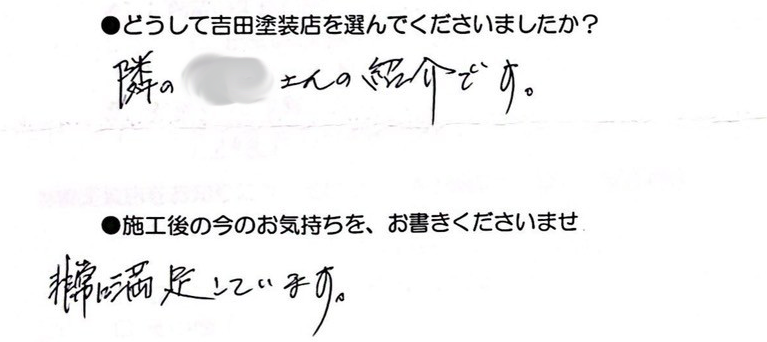 ●どうして吉田塗装店を選んでくださいましたか？
隣の さんの紹介です。
●施工後の今のお気持ちを、お書きくださいませ
非常に満足しています。